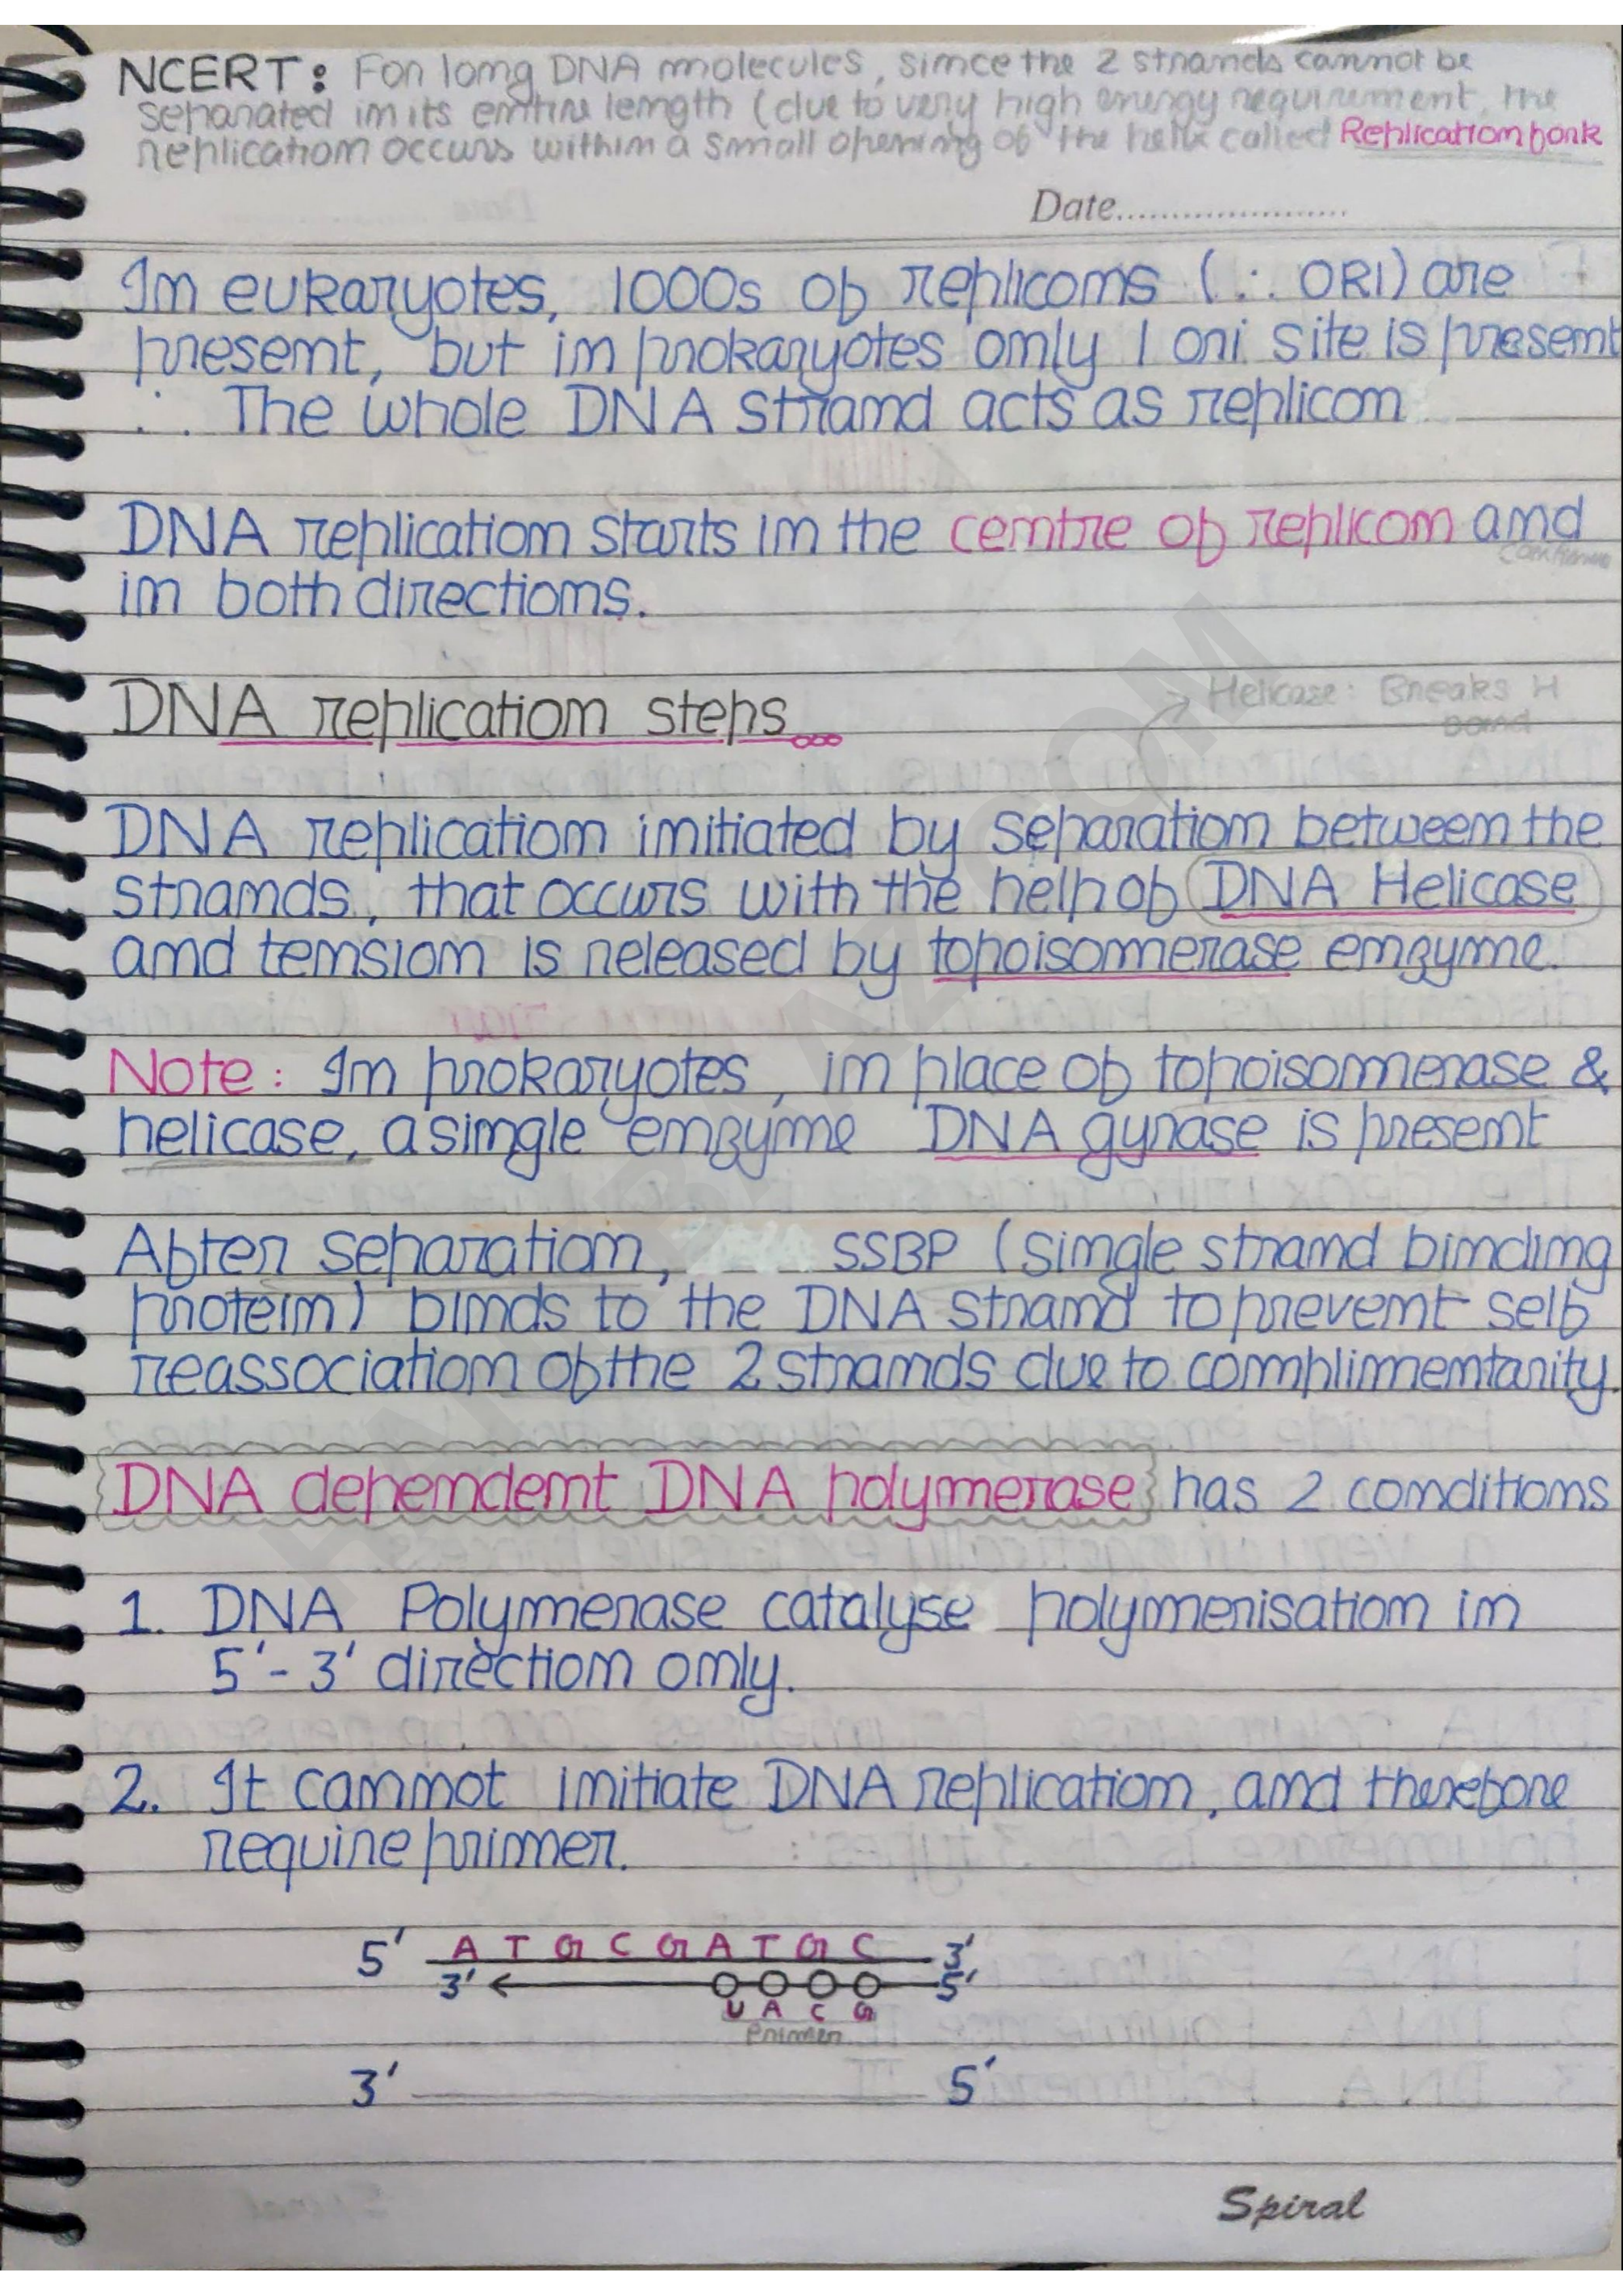 NCERT: For long DNA molecules, since the 2 strands cannot be
separated in its entire length (due to very high energy requirement, the
replication occurs within a small opening of the helix called Replication fork
Date
In eukaryotes, 1000s of replicons (∴ ORI) are
present, but in prokaryotes only 1 ori site is present
∴ The whole DNA strand acts as replicon
DNA replication starts in the centre of replicon and
continue
in both directions.
DNA replication steps
→ Helicase: Breaks H
bond
DNA replication initiated by separation between the
strands, that occurs with the help of DNA Helicase
and tension is released by topoisomerase enzyme.
Note: In prokaryotes, in place of topoisomerase &
helicase, a single enzyme DNA gyrase is present
After separation, SSBP (single strand binding
protein) binds to the DNA strand to prevent self
reassociation of the 2 strands due to complimentarity.
DNA dependent DNA polymerase has 2 conditions
1. DNA Polymerase catalyse polymerisation in
5'-3' direction only.
2. It cannot initiate DNA replication, and therefore
require primer.
5' A T G C G A T G C 3'
3' 5'
U A C G
Primer
3' 5'
Spiral
HARIBAAZ.COM